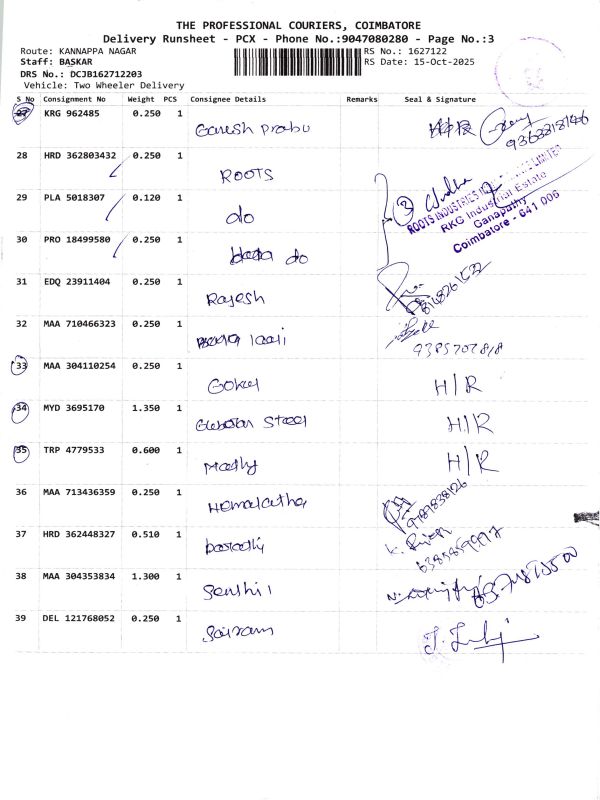 THE PROFESSIONAL COURIERS, COIMBATORE
Delivery Runsheet - PCX - Phone No.:9047080280 - Page No.:3
Route: KANNAPPA NAGAR RS No.: 1627122
Staff: BASKAR RS Date: 15-Oct-2025
DRS No.: DCJB162712203
Vehicle: Two Wheeler Delivery
S No Consignment No Weight PCS Consignee Details Remarks Seal & Signature
27 KRG 962485 0.250 1 Ganesh Prabu
28 HRD 362803432 0.250 1 ROOTS
29 PLA 5018307 0.120 1 do
ROOTS INDUSTRIES LIMITED
RKG Industrial Estate
Ganapathy
Coimbatore - 641 006
30 PRO 18499580 0.250 1 do
31 EDQ 23911404 0.250 1 Rajesh
32 MAA 710466323 0.250 1
33 MAA 304110254 0.250 1 Gokul H/R
34 MYD 3695170 1.350 1 Steel H/R
35 TRP 4779533 0.600 1 H/R
36 MAA 713436359 0.250 1 Hemalatha
9789838126
37 HRD 362448327 0.510 1
38 MAA 304353834 1.300 1 Senthil
39 DEL 121768052 0.250 1 Sairam